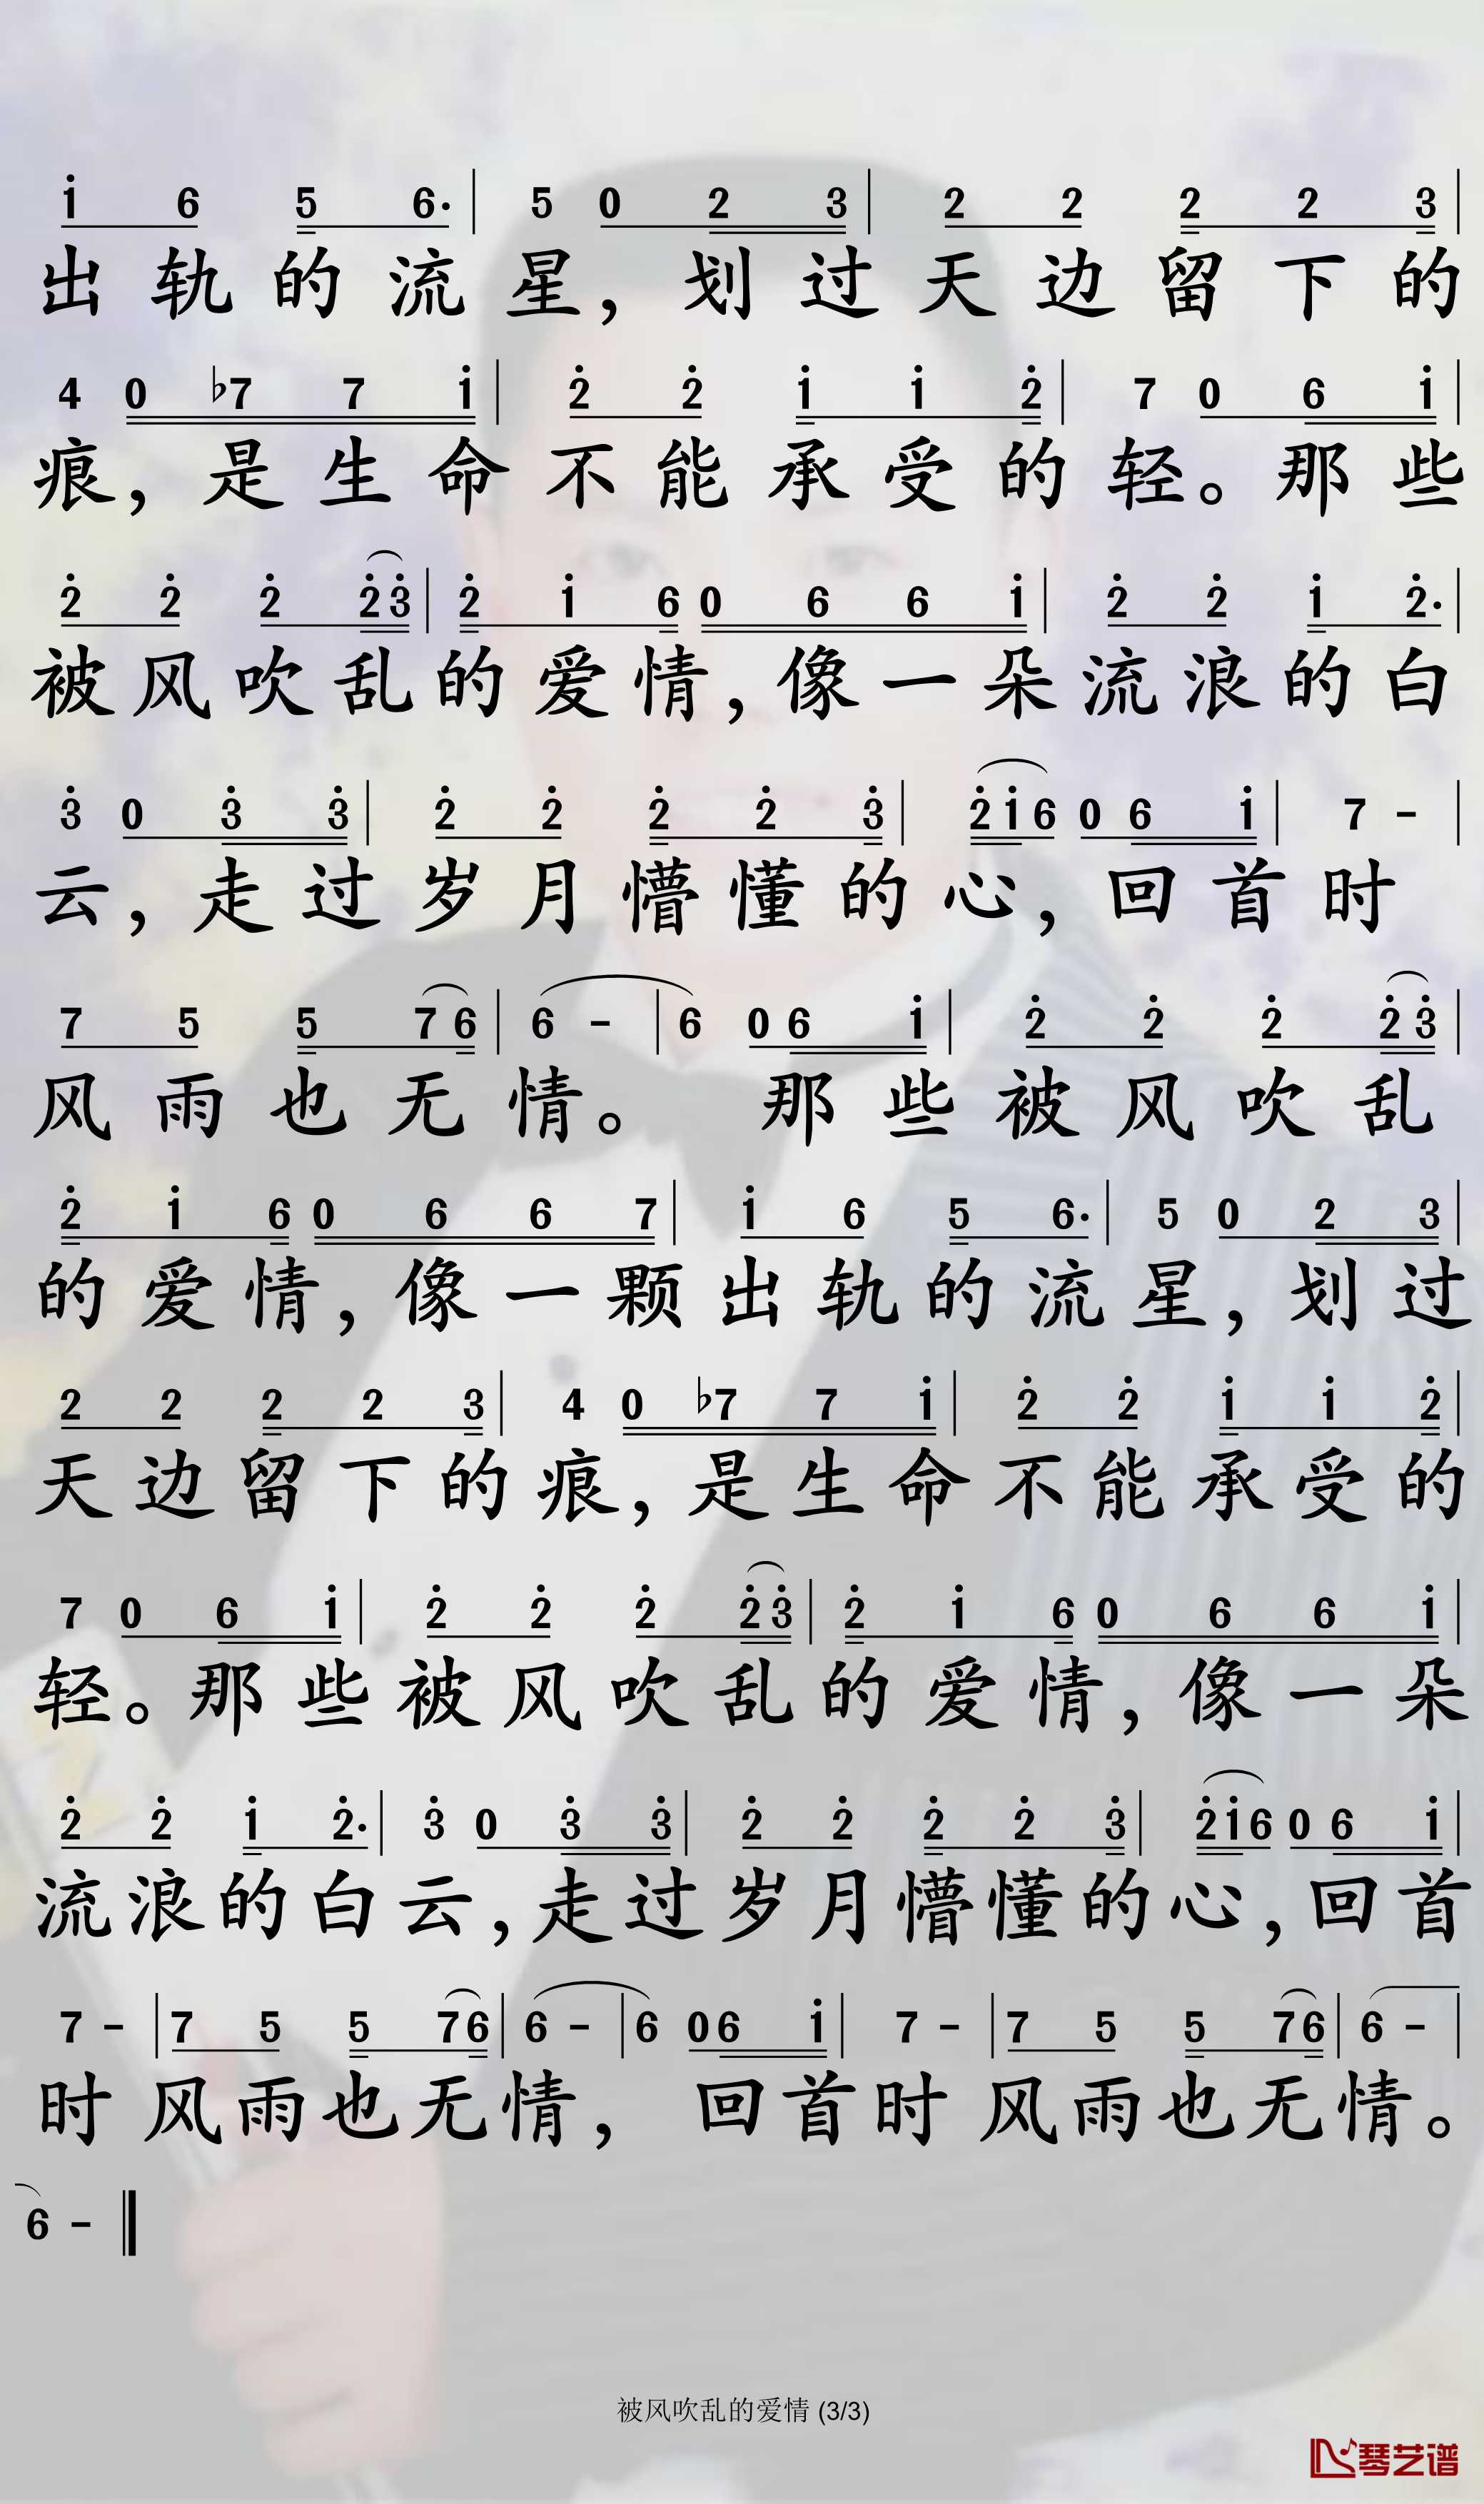 i 6 5 6· | 5 0 2 3 | 2 2 2 2 3 |
出轨的流星，划过天边留下的
4 0 ♭7 7 i | 2 2 i i 2 | 7 0 6 i |
痕，是生命不能承受的轻。那些
2 2 2 2 3 | 2 i 6 0 6 6 i | 2 2 i 2· |
被风吹乱的爱情，像一朵流浪的白
3 0 3 3 | 2 2 2 2 3 | 2 i 6 0 6 i | 7 - |
云，走过岁月懵懂的心，回首时
7 5 5 7 6 | 6 - | 6 0 6 i | 2 2 2 2 3 |
风雨也无情。 那些被风吹乱
2 i 6 0 6 6 7 | i 6 5 6· | 5 0 2 3 |
的爱情，像一颗出轨的流星，划过
2 2 2 2 3 | 4 0 ♭7 7 i | 2 2 i i 2 |
天边留下的痕，是生命不能承受的
7 0 6 i | 2 2 2 2 3 | 2 i 6 0 6 6 i |
轻。那些被风吹乱的爱情，像一朵
2 2 i 2· | 3 0 3 3 | 2 2 2 2 3 | 2 i 6 0 6 i |
流浪的白云，走过岁月懵懂的心，回首
7 - | 7 5 5 7 6 | 6 - | 6 0 6 i | 7 - | 7 5 5 7 6 | 6 - |
时风雨也无情， 回首时风雨也无情。
6 - ‖
被风吹乱的爱情 (3/3)
琴艺谱